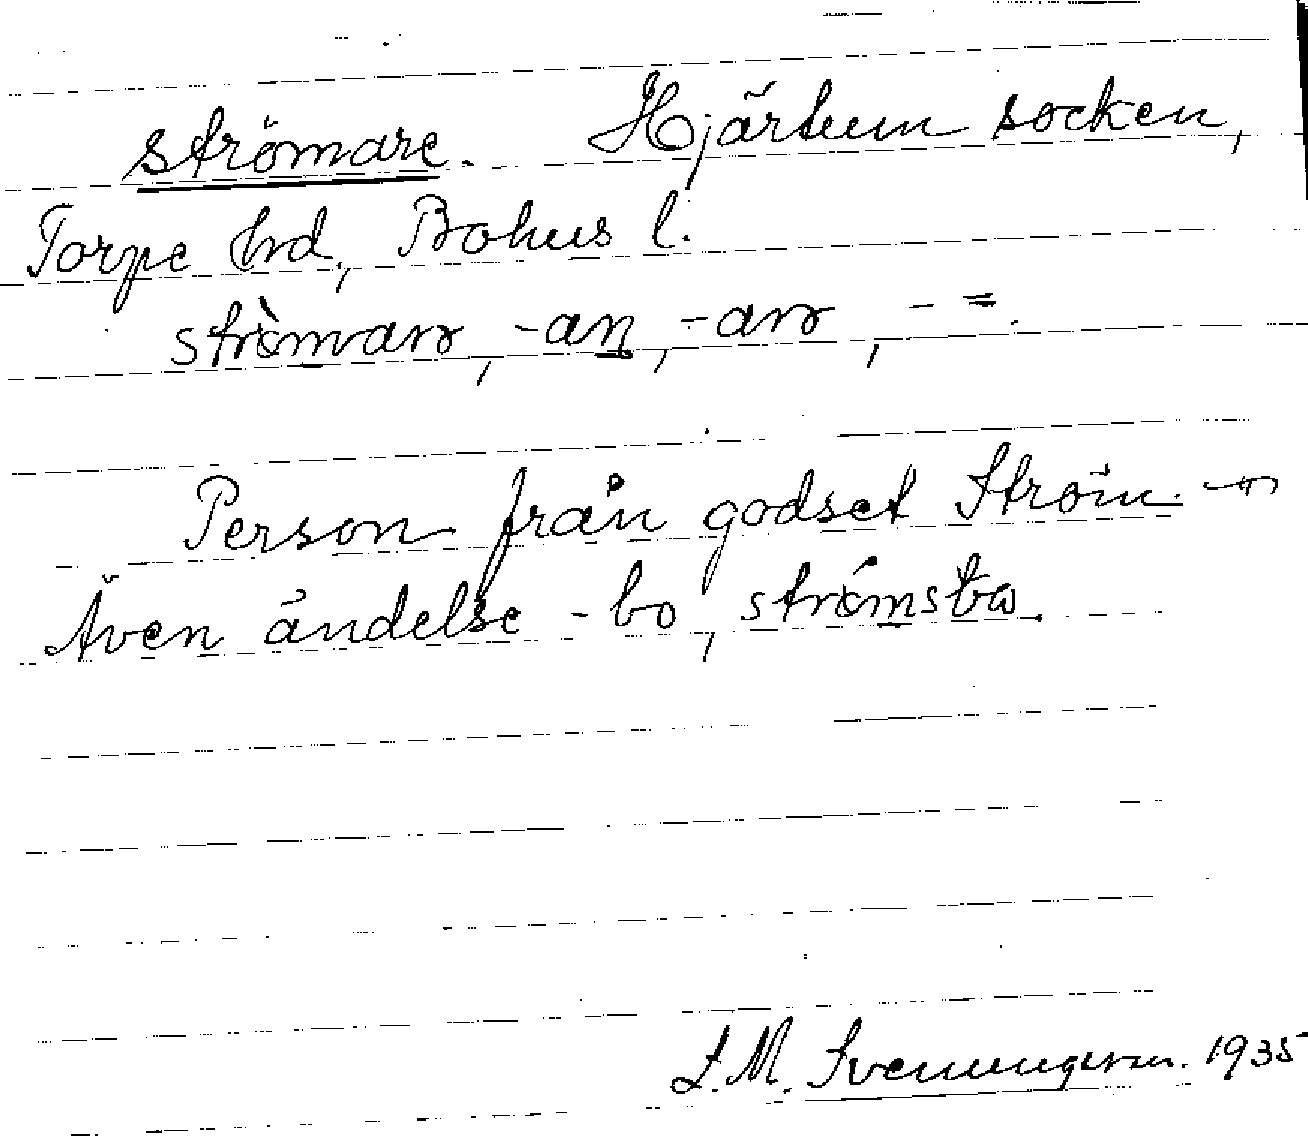 strömare. Hjärtum socken,
Torpe hd, Bohus l.
strö̀marr, -an, -arr, - =.
Person från godset Ström.
Även ändelse -bo, strömsbo.
S.M. Svenungsson. 1935